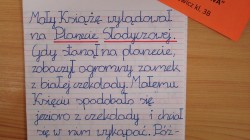 wicz kl. 3B
Mały Książę wylądował
na Planecie Słodyczowej.
Gdy stanął na planecie,
zobaczył ogromny zamek
z białej czekolady. Małemu
Księciu spodobało się
jezioro z czekolady i chciał
się w nim wykąpać. Póź-